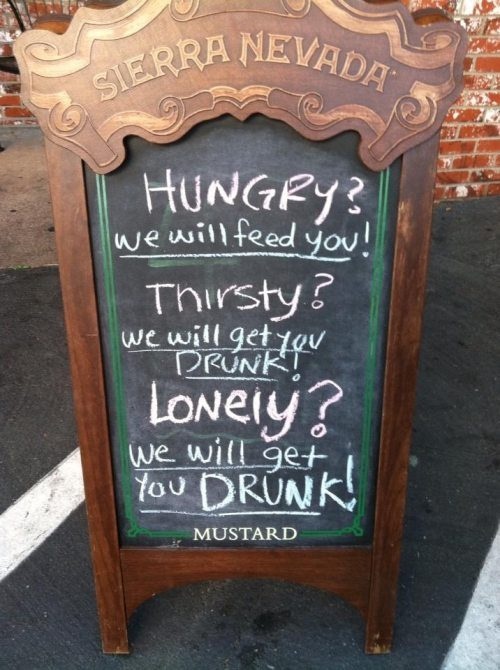 SIERRA NEVADA
HUNGRY?
we will feed you!
Thirsty?
we will get you
DRUNK!
LONely?
we will get
You DRUNK!
MUSTARD